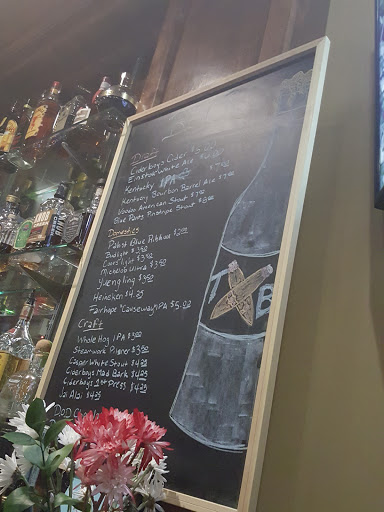 Draft
Ciderboys Cider $5.00
Einstok White Ale
Kentucky IPA $7.00
Kentucky Bourbon Barrel Ale $7.00
American Stout
Blue Pants Pinstripe Stout $6.00
Domestics
Pabst Blue Ribbon $2.00
Budlight $3.50
Coors light $3.50
Michelob Ultra $3.50
Yuengling $3.50
Heineken $4.25
Fairhope "Causeway" IPA $5.00
Craft
Whole Hog IPA $5.00
Steamwork Pilsner $3.50
Casper White Stout $4.25
Ciderboys Mad Bark $4.25
Ciderboys 1st Press $4.25
Jai Alai $4.25
DoD
T B